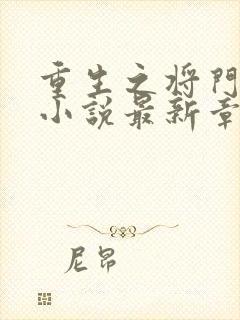 重生之将门
小说最新章
尼昂